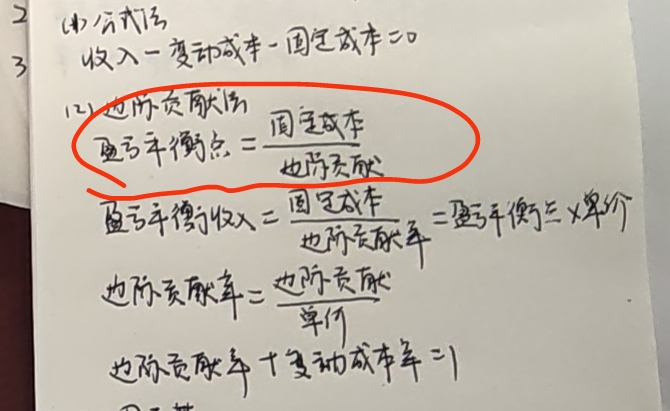 2
(1) 公式法
3
收入-变动成本-固定成本=0
(2) 边际贡献法
盈亏平衡点=固定成本/边际贡献
盈亏平衡收入=固定成本/边际贡献率=盈亏平衡点×单价
边际贡献率=边际贡献/单价
边际贡献率+变动成本率=1